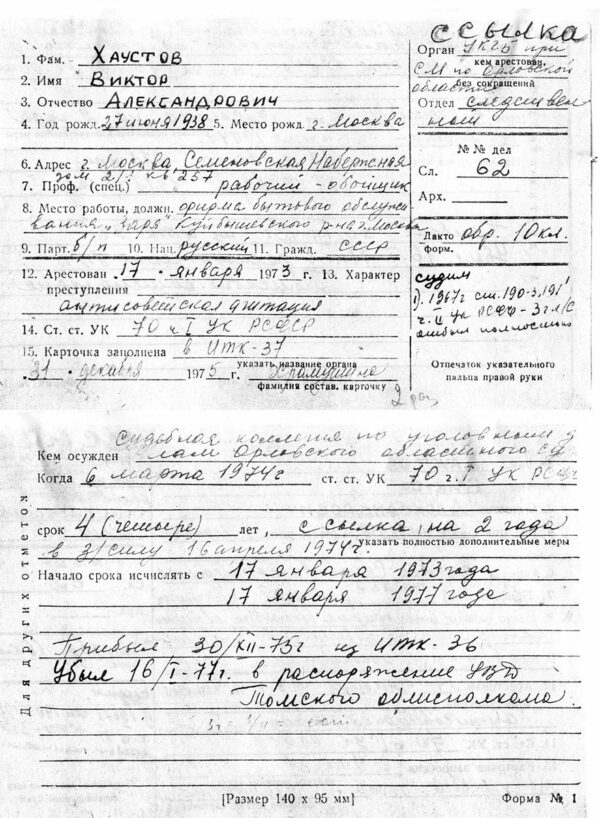 ССЫЛКА
1. Фам. Хаустов
2. Имя Виктор
3. Отчество Александрович
4. Год рожд. 27 июня 1938 5. Место рожд. г. Москва
6. Адрес г. Москва Семеновская Набережная
дом 2/1 кв 257
7. Проф. (спец.) рабочий-обойщик
8. Место работы, должн. фирма бытового обслужи-
вания "Заря" Куйбышевского р-на г. Москва
9. Парт. б/п 10. Нац. русский 11. Гражд. СССР
12. Арестован 17 января 1973 г. 13. Характер
преступления
антисоветская агитация
14. Ст. ст. УК 70 ч. I УК РСФСР
15. Карточка заполнена в ИТК-37
указать название органа
31 декабря 1975 г.
фамилия состав. карточку
2 раз
Орган УКГБ при
кем арестован,
СМ по Орловской
без сокращений
области
Отдел следствен
ном
№№ дел
Сл. 62
Арх.
Дакто обр. 10 кл.
форм.
судим
1). 1967г ст. 190-3, 191
ч. II УК РСФСР - 3 г л/с
отбыл полностью
Отпечаток указательного
пальца правой руки
Судебная коллегия по уголовным д
Кем осужден лам Орловского областного су
Когда 6 марта 1974г ст. ст. УК 70 ч. I УК РСФС
срок 4 (четыре) лет, ссылка на 2 года
указать полностью дополнительные меры
в з/силу 16 апреля 1974г.
Начало срока исчислять с 17 января 1973 года
17 января 1977 года
Прибыл 30/XII-75г из ИТК-36
Убыл 16/I-77г. в распоряжение УВД
Томского облисполкома
Для других отметок
[Размер 140 х 95 мм] Форма № 1